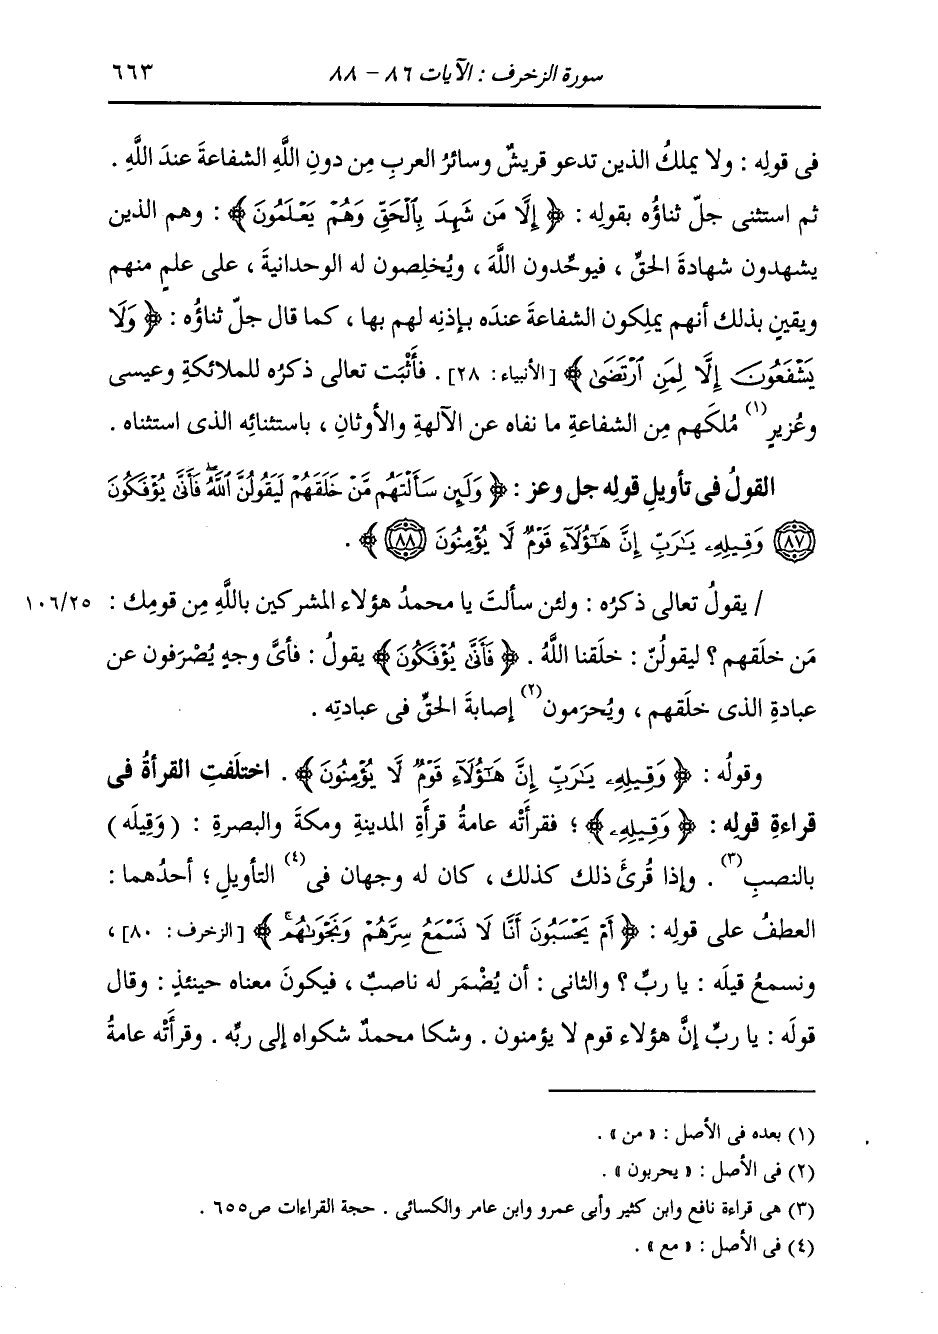 سورة الزخرف : الآيات ٨٦ - ٨٨ ٦٦٣
فى قولِه : ولا يملكُ الذين تدعو قريشٌ وسائرُ العربِ مِن دونِ اللَّهِ الشفاعةَ عندَ اللَّهِ .
ثم استثنى جلّ ثناؤُه بقولِه : ﴿ إِلَّا مَن شَهِدَ بِٱلْحَقِّ وَهُمْ يَعْلَمُونَ ﴾ : وهم الذين
يشهدون شهادةَ الحقِّ ، فيوحِّدون اللَّهَ ، ويُخلِصون له الوحدانيةَ ، على علمٍ منهم
ويقينٍ بذلك أنهم يملِكون الشفاعةَ عندَه بإذنِه لهم بها ، كما قال جلّ ثناؤُه : ﴿ وَلَا
يَشْفَعُونَ إِلَّا لِمَنِ ٱرْتَضَىٰ ﴾ [الأنبياء : ٢٨] . فأَثْبَت تعالى ذكرُه للملائكةِ وعيسى
وعُزيرٍ (١) مُلكَهم مِن الشفاعةِ ما نفاه عن الآلهةِ والأوثانِ ، باستثنائِه الذى استثناه .
القولُ فى تأويلِ قولِه جل وعز : ﴿ وَلَئِن سَأَلْتَهُم مَّنْ خَلَقَهُمْ لَيَقُولُنَّ ٱللَّهُ ۖ فَأَنَّىٰ يُؤْفَكُونَ
٨٧ وَقِيلِهِۦ يَٰرَبِّ إِنَّ هَٰٓؤُلَآءِ قَوْمٌ لَّا يُؤْمِنُونَ ٨٨ ﴾ .
/ يقولُ تعالى ذكرُه : ولئن سألتَ يا محمدُ هؤلاء المشركين باللَّهِ مِن قومِك : ١٠٦/٢٥
مَن خلَقهم ؟ ليقولُنّ : خلَقنا اللَّهُ . ﴿ فَأَنَّىٰ يُؤْفَكُونَ ﴾ يقولُ : فأىَّ وجهٍ يُصْرَفون عن
عبادةِ الذى خلَقهم ، ويُحرَمون (٢) إصابةَ الحقِّ فى عبادتِه .
وقولُه : ﴿ وَقِيلِهِۦ يَٰرَبِّ إِنَّ هَٰٓؤُلَآءِ قَوْمٌ لَّا يُؤْمِنُونَ ﴾ . اختلَفتِ القرأةُ فى
قراءةِ قولِه : ﴿ وَقِيلِهِۦ ﴾ ؛ فقرأَتْه عامةُ قرأَةِ المدينةِ ومكةَ والبصرةِ : ( وَقِيلَه )
بالنصبِ (٣) . وإذا قُرئَ ذلك كذلك ، كان له وجهان فى (٤) التأويلِ ؛ أحدُهما :
العطفُ على قولِه : ﴿ أَمْ يَحْسَبُونَ أَنَّا لَا نَسْمَعُ سِرَّهُمْ وَنَجْوَىٰهُم ۚ ﴾ [الزخرف : ٨٠] ،
ونسمعُ قيلَه : يا ربِّ ؟ والثانى : أن يُضْمَر له ناصبٌ ، فيكونَ معناه حينئذٍ : وقال
قولَه : يا ربِّ إنَّ هؤلاء قوم لا يؤمنون . وشكا محمدٌ شكواه إلى ربِّه . وقرأَتْه عامةُ
(١) بعده فى الأصل : « من » .
(٢) فى الأصل : « يحربون » .
(٣) هى قراءة نافع وابن كثير وأبى عمرو وابن عامر والكسائى . حجة القراءات ص٦٥٥ .
(٤) فى الأصل : « مع » .